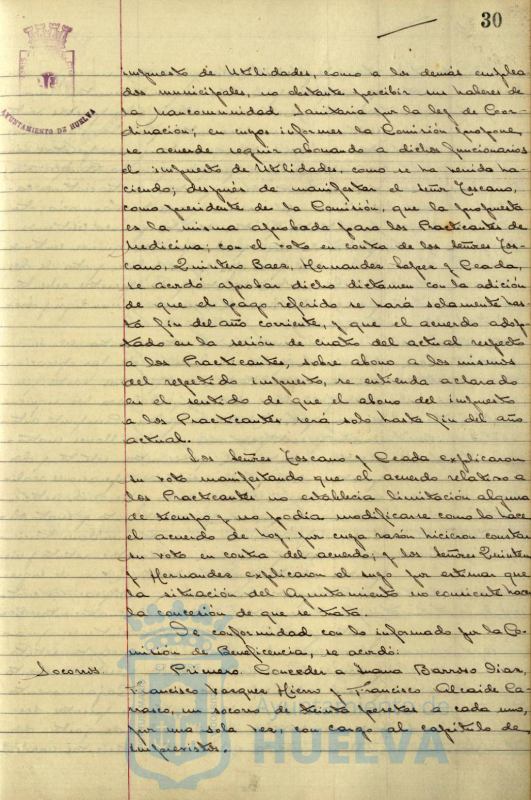 30
AYUNTAMIENTO DE HUELVA
impuesto de Utilidades, como a los demás emplea
dos municipales, no obstante percibir sus haberes de
la Mancomunidad Sanitaria por la ley de Coor
dinación; en cuyos informes la Comisión propone
se acuerde seguir abonando a dichos funcionarios
el impuesto de Utilidades, como se ha venido ha-
ciendo; después de manifestar el Señor Toscano,
como presidente de la Comisión, que la propuesta
es la misma aprobada para los Practicantes de
Medicina; con el voto en contra de los Señores Tos-
cano, Quintero Baez, Hernandez Lopez y Ceada,
se acordó aprobar dicho dictamen con la adición
de que el pago referido se hará solamente has
ta fin del año corriente, y que el acuerdo adop-
tado en la sesión de cuatro del actual respecto
a los Practicantes, sobre abono a los mismos
del repetido impuesto, se entienda aclarado
en el sentido de que el abono del impuesto
a los Practicantes será solo hasta fin del año
actual.
Los Señores Toscano y Ceada explicaron
su voto manifestando que el acuerdo relativo a
los Practicantes no establecia limitación alguna
de tiempo y no podia modificarse como lo hace
el acuerdo de hoy, por cuya razón hicieron constar
su voto en contra del acuerdo; y los Señores Quintero
y Hernandez explicaron el suyo por estimar que
la situación del Ayuntamiento no consiente hacer
la concesión de que se trata.
De conformidad con lo informado por la Co-
misión de Beneficencia, se acordó:
Socorros. Primero. Conceder a Juana Barroso Diaz,
Francisco Vazquez Hierro y Francisco Alcaide Ca-
rrasco, un socorro de treinta pesetas a cada uno,
por una sola vez, con cargo al capitulo de
imprevistos.
Ayuntamiento de
HUELVA